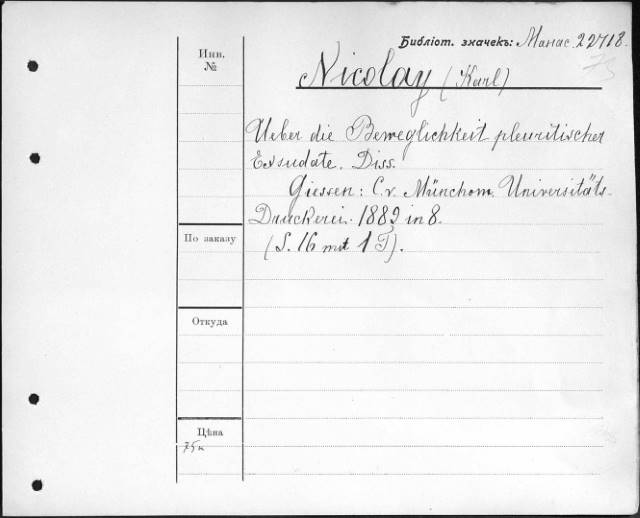 Библіот. значекъ: Манас. 22718.
75
Инв.
№
Nicolay (Karl)
Ueber die Beweglichkeit pleuritischer
Exsudate. Diss.
Giessen: C. v. Münchow. Universitäts-
Druckerei. 1882 in 8.
(S. 16 mit 1 T).
По заказу
Откуда
Цѣна
75к